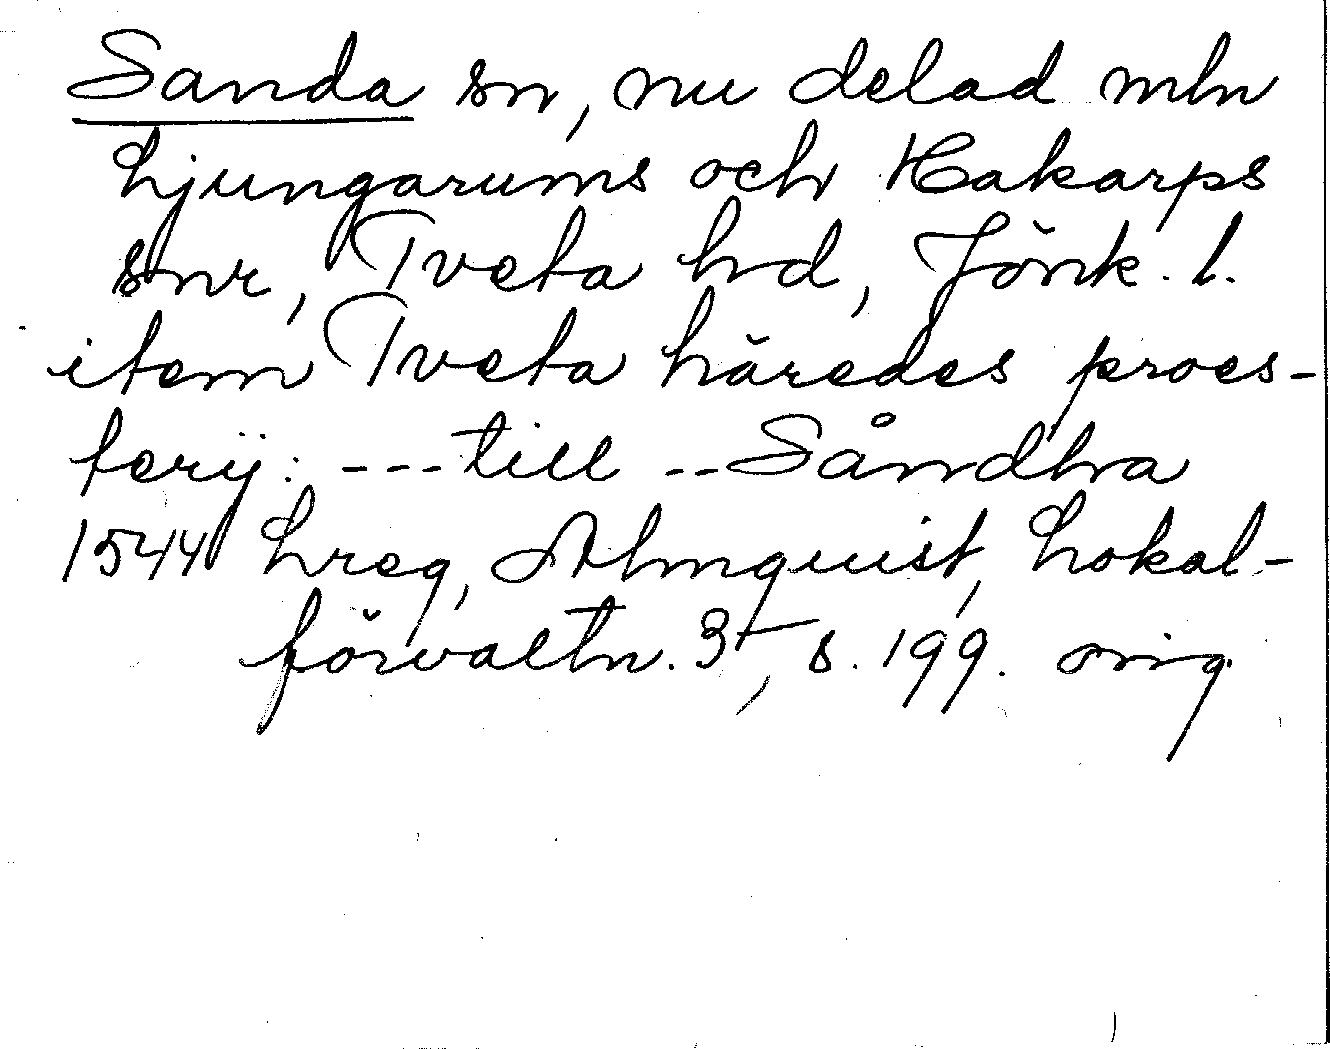 Sanda sn, nu delad mln
Ljungarums och Hakarps
snr, Tveta hd, Jönk. l.
item Tveta häredes proes-
terij: --- till -- Såndha
1544 Lreg, Almquist, Lokal-
förvaltn. 3, s. 199. orig.